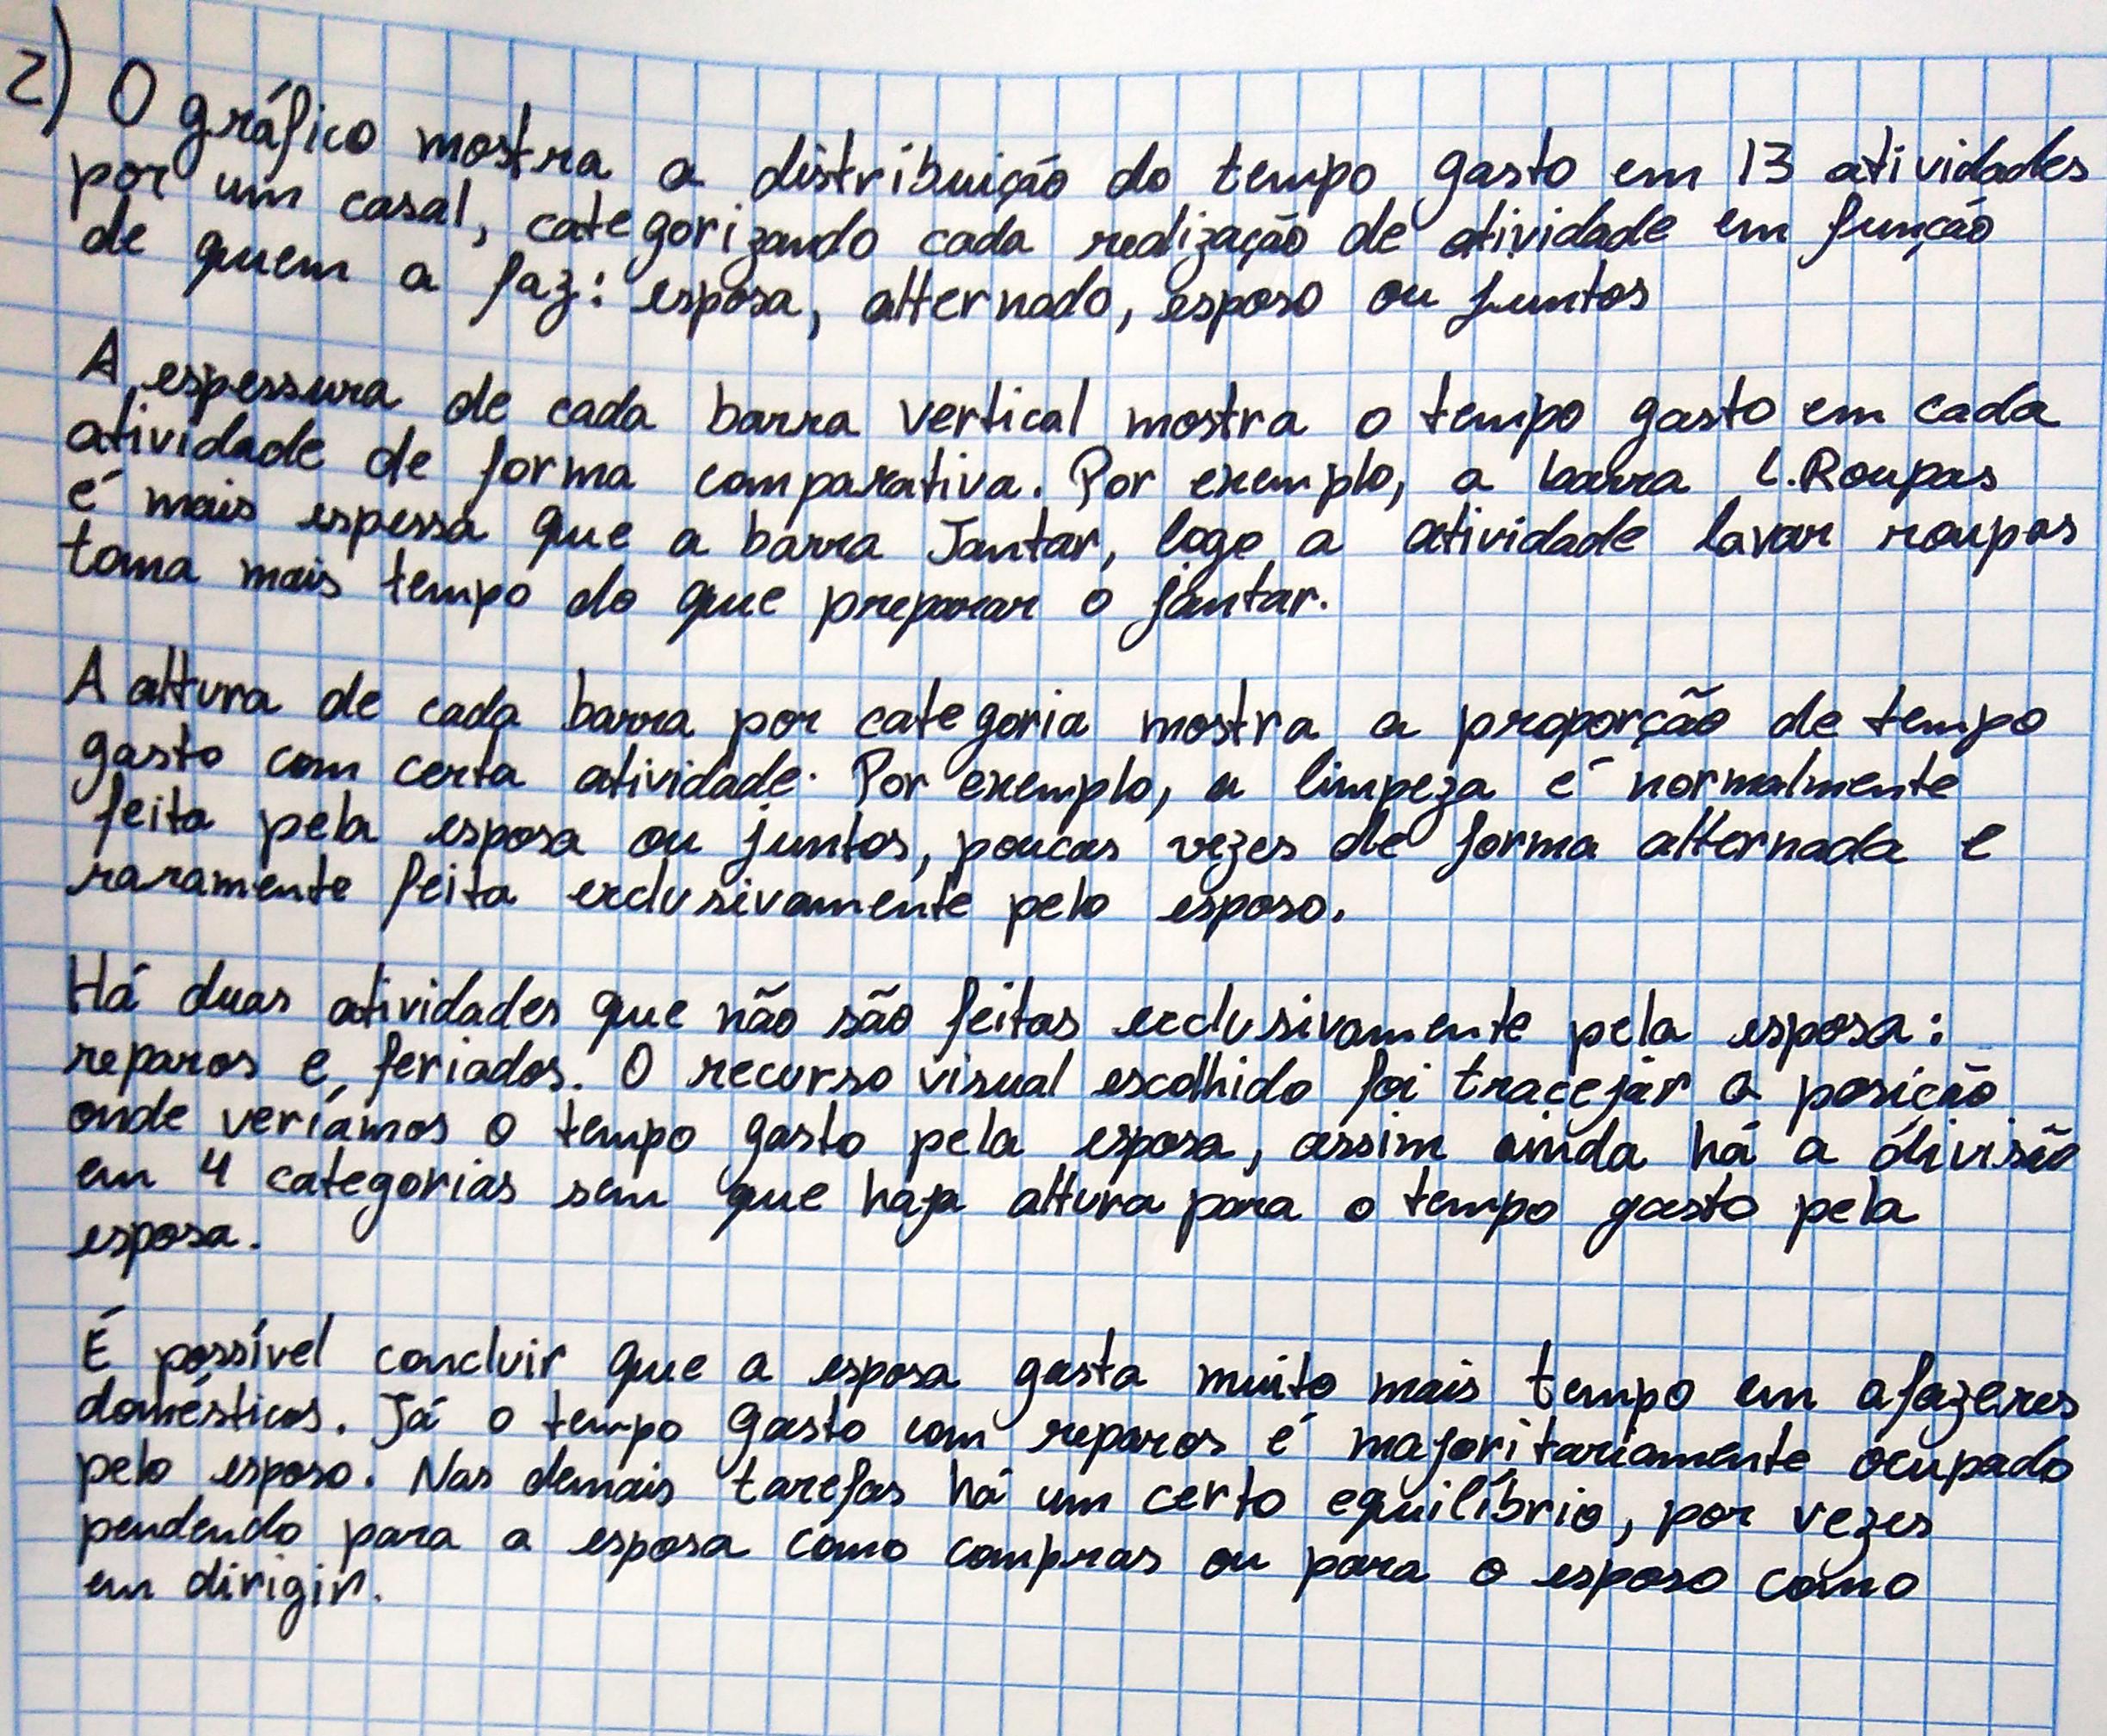 2) O gráfico mostra a distribuição do tempo gasto em 13 atividades
por um casal, categorizando cada realização de atividade em função
de quem a faz: esposa, alternado, esposo ou juntos
A espessura de cada barra vertical mostra o tempo gasto em cada
atividade de forma comparativa. Por exemplo, a barra L.Roupas
é mais espessa que a barra Jantar, logo a atividade lavar roupas
toma mais tempo do que preparar o jantar.
A altura de cada barra por categoria mostra a proporção de tempo
gasto com certa atividade. Por exemplo, a limpeza é normalmente
feita pela esposa ou juntos, poucas vezes de forma alternada e
raramente feita exclusivamente pelo esposo.
Há duas atividades que não são feitas exclusivamente pela esposa:
reparos e feriados. O recurso visual escolhido foi tracejar a posição
onde veríamos o tempo gasto pela esposa, assim ainda há a divisão
em 4 categorias sem que haja altura para o tempo gasto pela
esposa.
É possível concluir que a esposa gasta muito mais tempo em afazeres
domésticos. Já o tempo gasto com reparos é majoritariamente ocupado
pelo esposo. Nas demais tarefas há um certo equilíbrio, por vezes
pendendo para a esposa como compras ou para o esposo como
em dirigir.